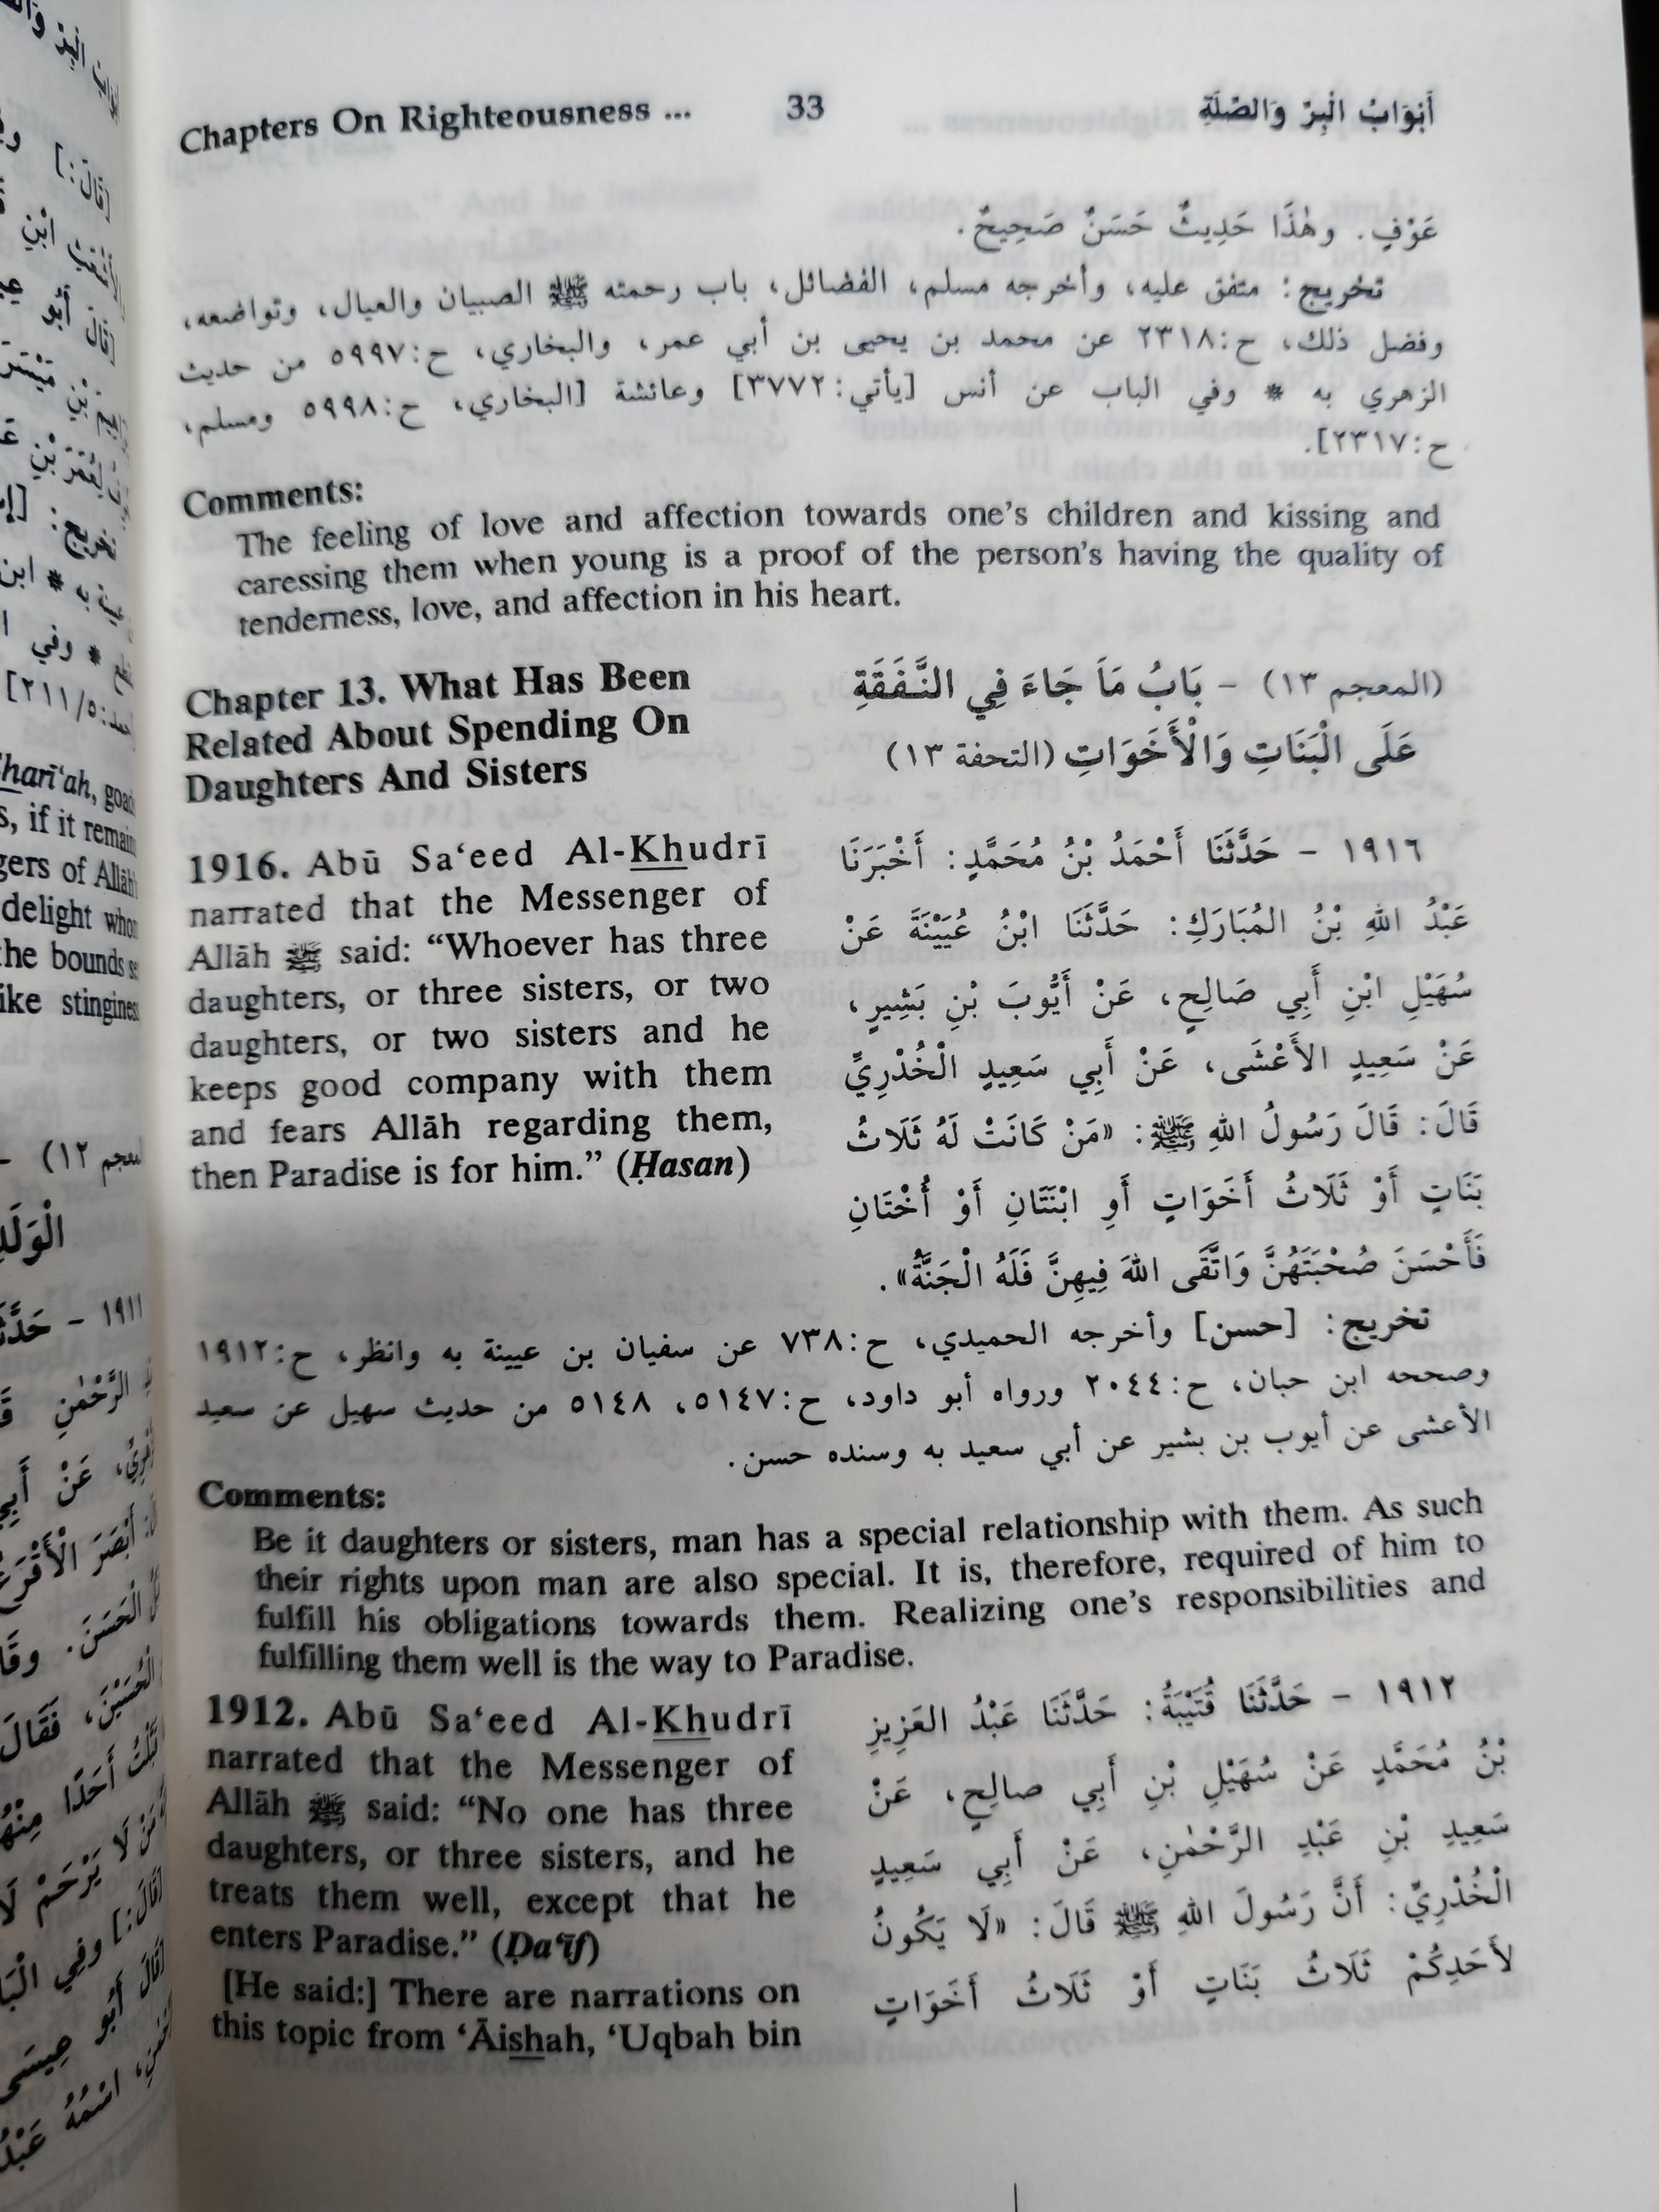 Chapters On Righteousness ... 33 أَبْوَابُ الْبِرِّ وَالصِّلَةِ
عَوْفٍ. وهٰذَا حَدِيثٌ حَسَنٌ صَحِيحٌ.
تخريج: متفق عليه، وأخرجه مسلم، الفضائل، باب رحمته ﷺ الصبيان والعيال، وتواضعه،
وفضل ذلك، ح:٢٣١٨ عن محمد بن يحيى بن أبي عمر، والبخاري، ح:٥٩٩٧ من حديث
الزهري به * وفي الباب عن أنس [يأتي:٣٧٧٢] وعائشة [البخاري، ح:٥٩٩٨ ومسلم،
ح:٢٣١٧].
Comments:
The feeling of love and affection towards one's children and kissing and
caressing them when young is a proof of the person's having the quality of
tenderness, love, and affection in his heart.
Chapter 13. What Has Been
Related About Spending On
Daughters And Sisters
(المعجم ١٣) - بَابُ مَا جَاءَ فِي النَّفَقَةِ
عَلَى الْبَنَاتِ وَالْأَخَوَاتِ (التحفة ١٣)
1916. Abū Sa‘eed Al-Khudrī
narrated that the Messenger of
Allāh ﷺ said: “Whoever has three
daughters, or three sisters, or two
daughters, or two sisters and he
keeps good company with them
and fears Allāh regarding them,
then Paradise is for him.” (Ḥasan)
١٩١٦ - حَدَّثَنَا أَحْمَدُ بْنُ مُحَمَّدٍ: أَخْبَرَنَا
عَبْدُ اللهِ بْنُ المُبَارَكِ: حَدَّثَنَا ابْنُ عُيَيْنَةَ عَنْ
سُهَيْلِ ابْنِ أَبِي صَالِحٍ، عَنْ أَيُّوبَ بْنِ بَشِيرٍ،
عَنْ سَعِيدٍ الأَعْشَى، عَنْ أَبِي سَعِيدٍ الْخُدْرِيِّ
قَالَ: قَالَ رَسُولُ اللهِ ﷺ: «مَنْ كَانَتْ لَهُ ثَلَاثُ
بَنَاتٍ أَوْ ثَلَاثُ أَخَوَاتٍ أَوِ ابْنَتَانِ أَوْ أُخْتَانِ
فَأَحْسَنَ صُحْبَتَهُنَّ وَاتَّقَى اللهَ فِيهِنَّ فَلَهُ الْجَنَّةُ».
تخريج: [حسن] وأخرجه الحميدي، ح:٧٣٨ عن سفيان بن عيينة به وانظر، ح:١٩١٢
وصححه ابن حبان، ح:٢٠٤٤ ورواه أبو داود، ح:٥١٤٧، ٥١٤٨ من حديث سهيل عن سعيد
الأعشى عن أيوب بن بشير عن أبي سعيد به وسنده حسن.
Comments:
Be it daughters or sisters, man has a special relationship with them. As such
their rights upon man are also special. It is, therefore, required of him to
fulfill his obligations towards them. Realizing one's responsibilities and
fulfilling them well is the way to Paradise.
1912. Abū Sa‘eed Al-Khudrī
narrated that the Messenger of
Allāh ﷺ said: “No one has three
daughters, or three sisters, and he
treats them well, except that he
enters Paradise.” (Ḍa‘īf)
[He said:] There are narrations on
this topic from ‘Āishah, ‘Uqbah bin
١٩١٢ - حَدَّثَنَا قُتَيْبَةُ: حَدَّثَنَا عَبْدُ العَزِيزِ
بْنُ مُحَمَّدٍ عَنْ سُهَيْلِ بْنِ أَبِي صالِحٍ، عَنْ
سَعِيدِ بْنِ عَبْدِ الرَّحْمٰنِ، عَنْ أَبِي سَعِيدٍ
الْخُدْرِيِّ: أَنَّ رَسُولَ اللهِ ﷺ قَالَ: «لَا يَكُونُ
لأَحَدِكُمْ ثَلَاثُ بَنَاتٍ أَوْ ثَلَاثُ أَخَوَاتٍ